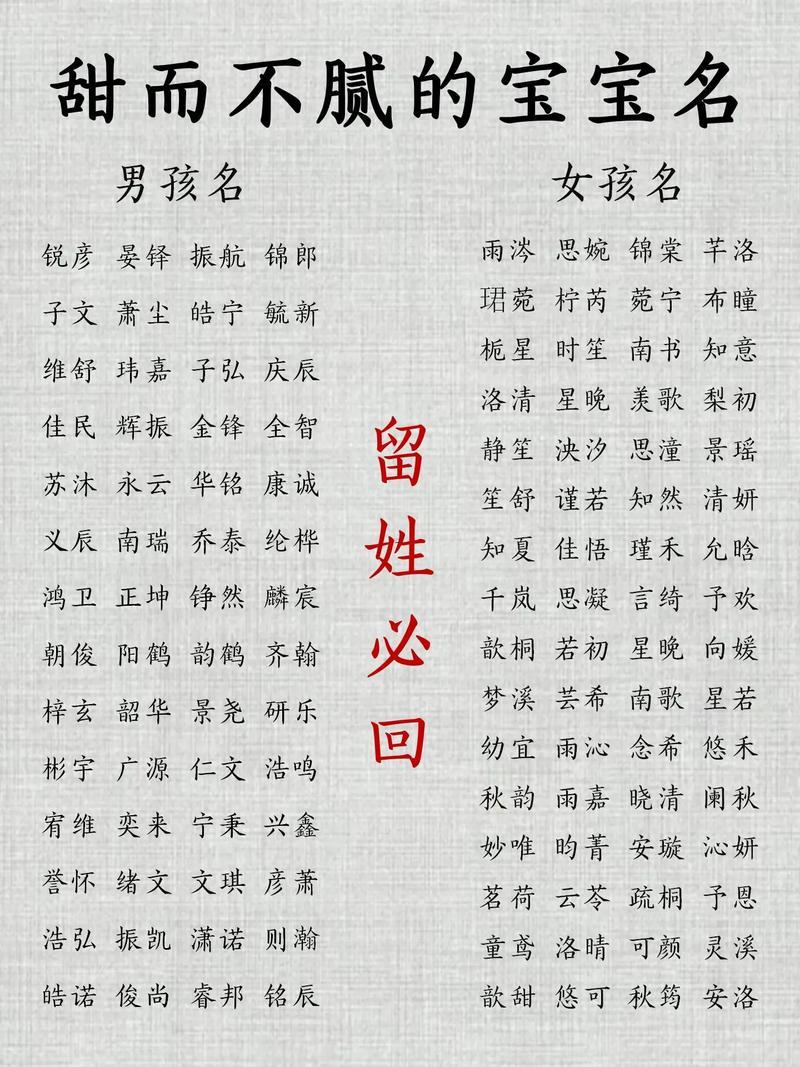 甜而不腻的宝宝名
男孩名
锐彦 晏铎 振航 锦郎
子文 萧尘 皓宁 毓新
维舒 玮嘉 子弘 庆辰
佳民 辉振 金锋 全智
苏沐 永云 华铭 康诚
义辰 南瑞 乔泰 纶桦
鸿卫 正坤 铮然 麟宸
朝俊 阳鹤 韵鹤 齐翰
梓玄 韶华 景尧 研乐
彬宇 广源 仁文 浩鸣
宥维 奕来 宁秉 兴鑫
誉怀 绪文 文琪 彦萧
浩弘 振凯 潇诺 则瀚
皓诺 俊尚 睿邦 铭辰
留姓必回
女孩名
雨涔 思婉 锦棠 芊洛
珺菀 柠芮 菀宁 布瞳
栀星 时笙 南书 知意
洛清 星晚 羡歌 梨初
静笙 泱汐 思潼 景瑶
笙舒 谨若 知然 清妍
知夏 佳悟 瑾禾 允晗
千岚 思凝 言绮 予欢
歆桐 若初 星晚 向媛
梦溪 芸希 南歌 星若
幼宜 雨沁 念希 悠禾
秋韵 雨嘉 晓清 阑秋
妙唯 昀菁 安璇 沁妍
茗荷 云苓 疏桐 予恩
童鸢 洛晴 可颜 灵溪
歆甜 悠可 秋筠 安洛